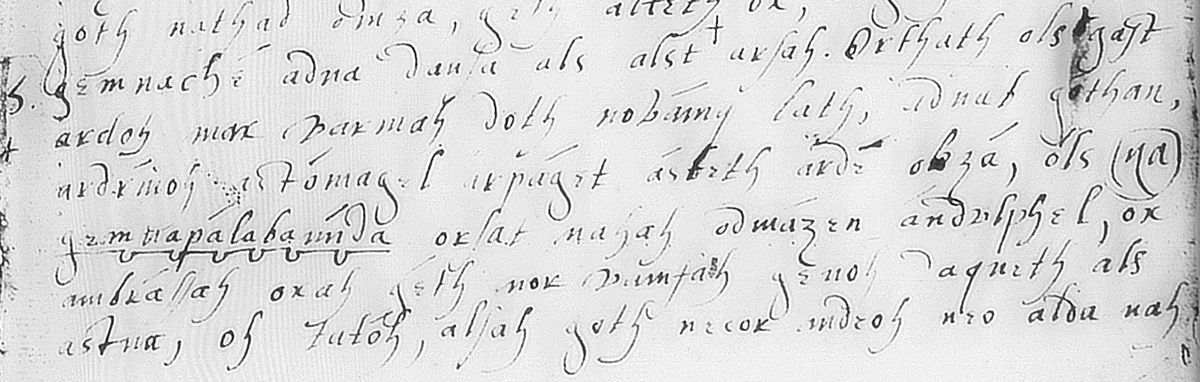 goth nathad omza, geth alteth ox,
5. gemnache adna dansa als alst + arsah. Orthath ols gast
ardoh max varmah doth nobamy lath, adnat gothan,
ardrinoh astomagel arpaget asteth arde obza, ols (na)
gemnapalabamida orsat nahah odmazen andulphel, ox
ambrassah oxah geth nor vumsah genoh daqueth als
astna, oh tatoh, alsah goth necor andeoh neo alda nah